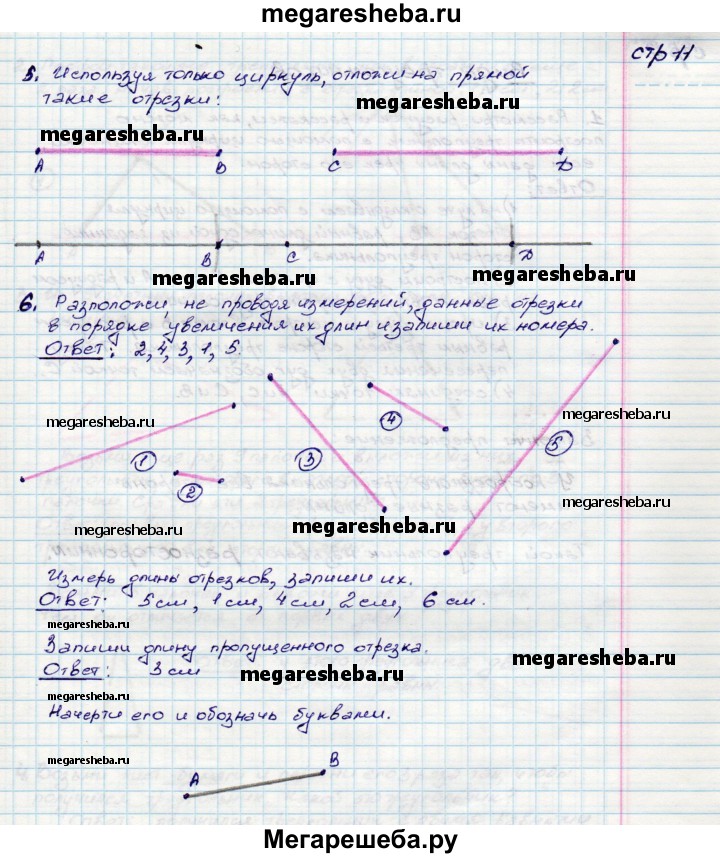 megaresheba.ru
стр 11
5. Используя только циркуль, отложи на прямой
такие отрезки:
megaresheba.ru megaresheba.ru
A B C D
A B C D
megaresheba.ru megaresheba.ru
6. Разположи, не проводя измерений, данные отрезки
в порядке увеличения их длин и запиши их номера.
Ответ: 2, 4, 3, 1, 5.
megaresheba.ru megaresheba.ru megaresheba.ru
1 2 3 4 5
megaresheba.ru megaresheba.ru megaresheba.ru
Измерь длины отрезков, запиши их.
Ответ: 5 см, 1 см, 4 см, 2 см, 6 см.
megaresheba.ru
Запиши длину пропущенного отрезка.
Ответ: 3 см
megaresheba.ru megaresheba.ru
megaresheba.ru
Начерти его и обозначь буквами.
megaresheba.ru
A B
Мегарешеба.ру